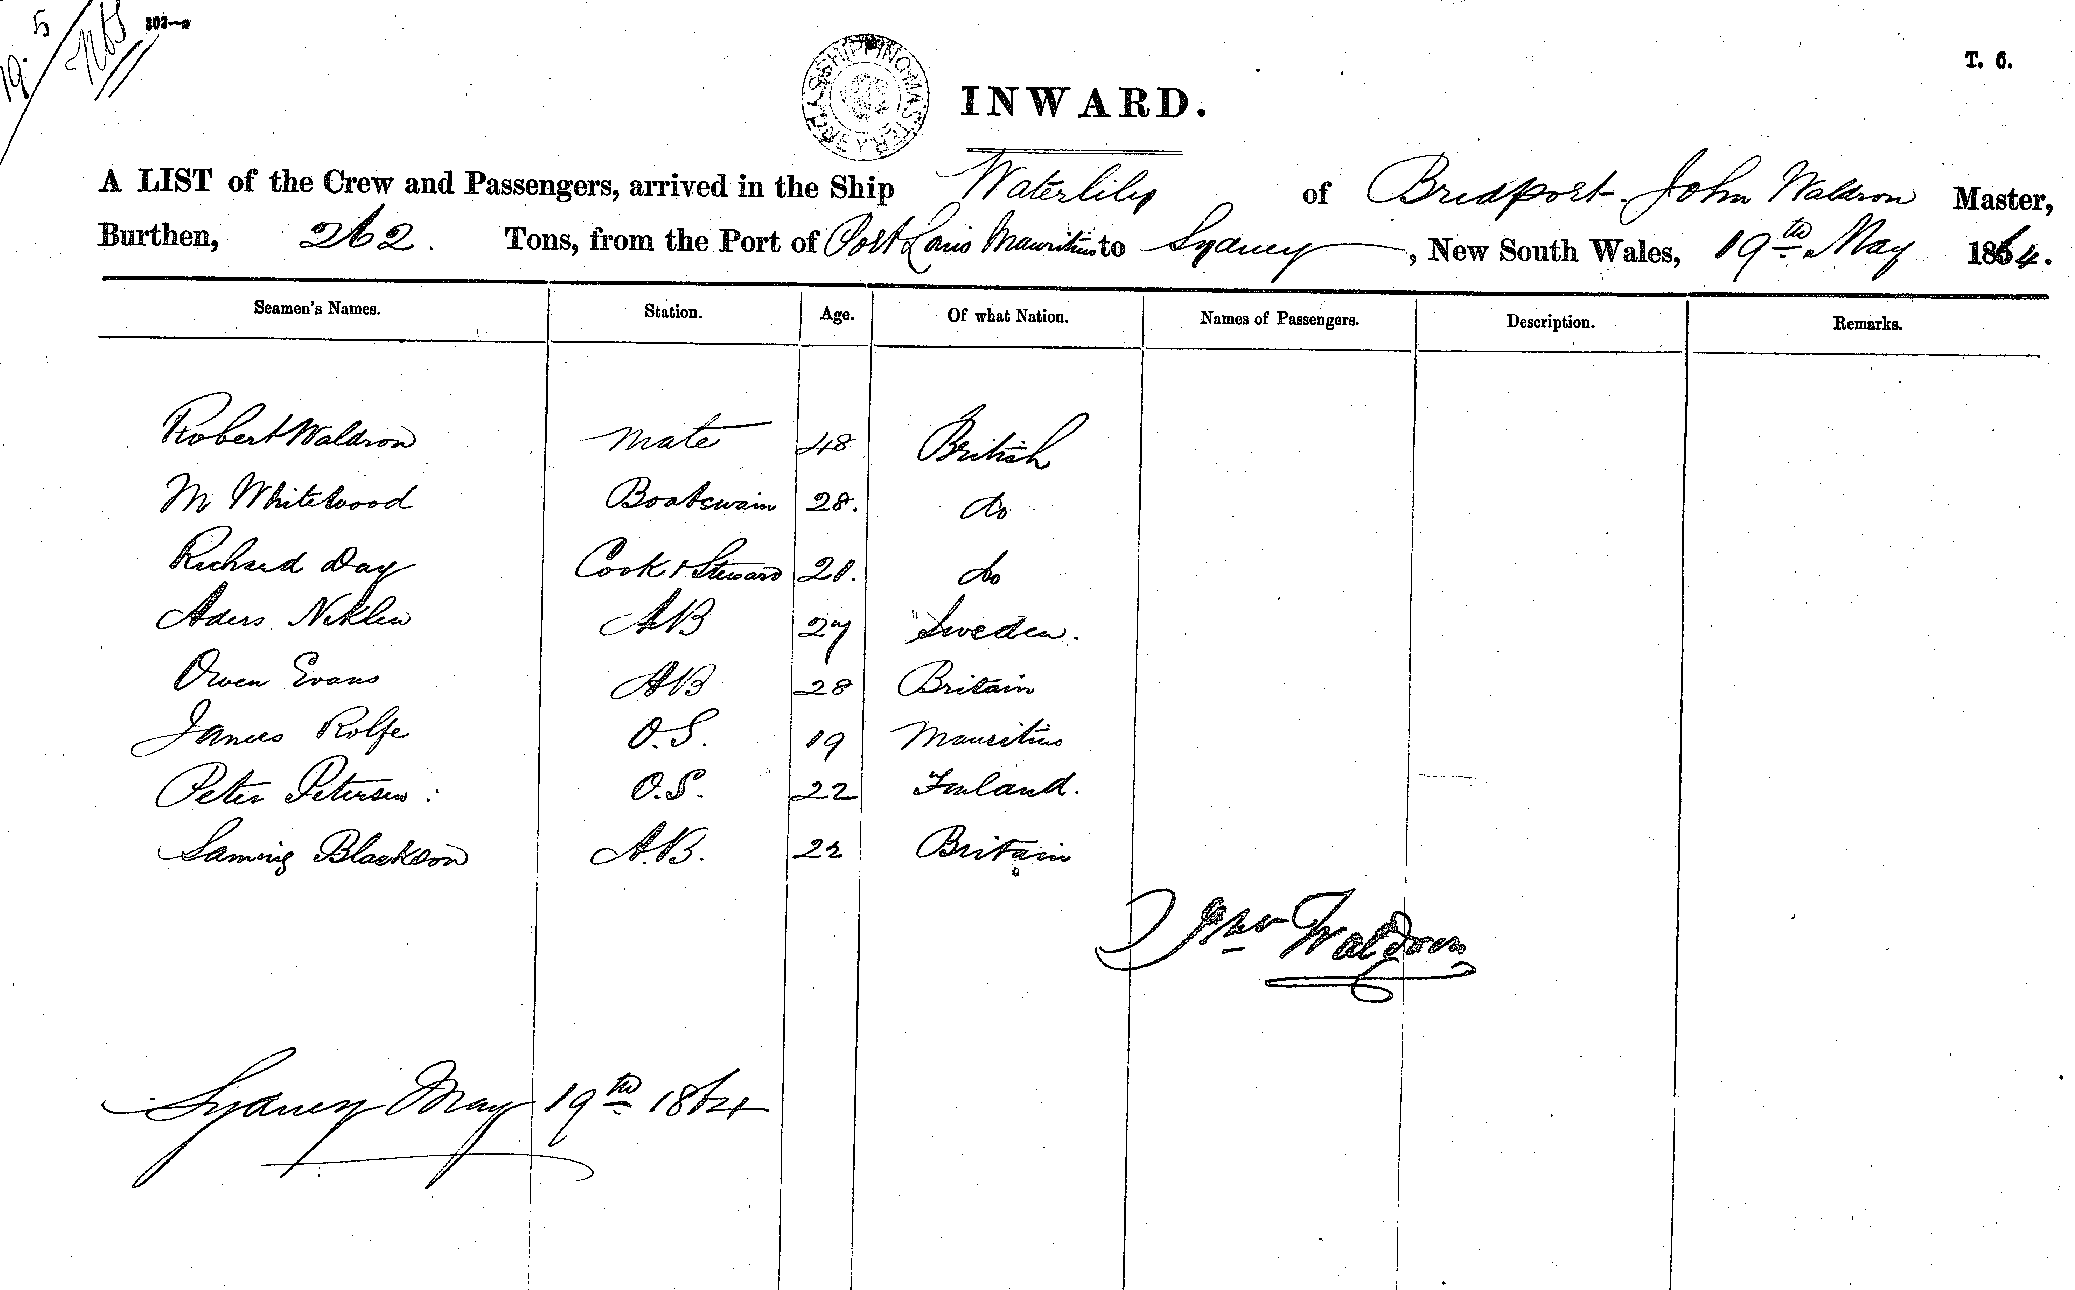 19. 5
303—a
T. 6.
SHIPPING MASTER
INWARD.
A LIST of the Crew and Passengers, arrived in the Ship Waterlily of Bridport John Waldron Master,
Burthen, 262. Tons, from the Port of Port Louis Mauritius to Sydney, New South Wales, 19th May 1864.
Seamen's Names. Station. Age. Of what Nation. Names of Passengers. Description. Remarks.
Robert Waldron Mate 48 British
M Whitewood Boatswain 28. do
Richard Day Cook & Steward 21. do
Aders Niklen AB 27 Sweden.
Owen Evans AB 28 Britain
James Rolfe O.S. 19 Mauritius
Peter Petersen O.S. 22 Finland.
Blackson A.B. 22 Britain
Jno Waldron
Sydney May 19th 1864